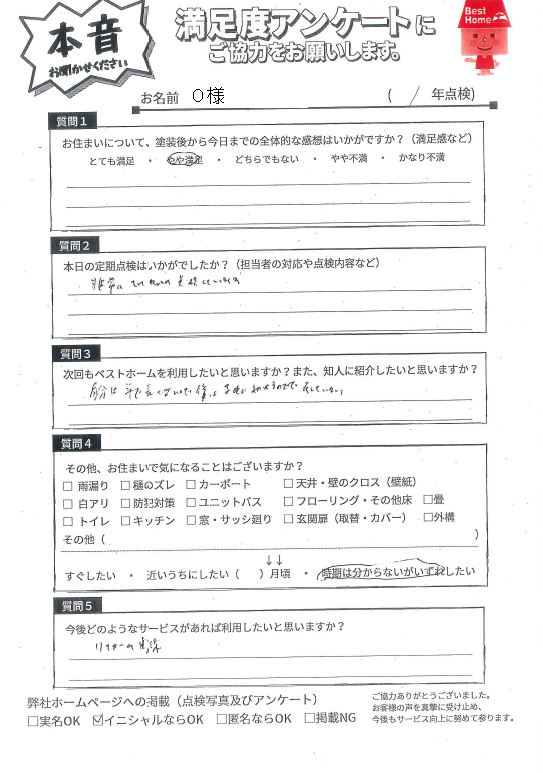 本音
お聞かせください
満足度アンケートに
ご協力をお願いします。
Best Home
お名前 O様 ( / 年点検)
質問1
お住まいについて、塗装後から今日までの全体的な感想はいかがですか？（満足感など）
とても満足 ・ やや満足 ・ どちらでもない ・ やや不満 ・ かなり不満
質問2
本日の定期点検はいかがでしたか？（担当者の対応や点検内容など）
質問3
次回もベストホームを利用したいと思いますか？また、知人に紹介したいと思いますか？
質問4
その他、お住まいで気になることはございますか？
□ 雨漏り □ 樋のズレ □ カーポート □ 天井・壁のクロス（壁紙）
□ 白アリ □ 防犯対策 □ ユニットバス □ フローリング・その他床 □畳
□ トイレ □ キッチン □ 窓・サッシ廻り □ 玄関扉（取替・カバー） □外構
その他（ ）
↓↓
すぐしたい ・ 近いうちにしたい（ ）月頃 ・ 時期は分からないがいずれしたい
質問5
今後どのようなサービスがあれば利用したいと思いますか？
弊社ホームページへの掲載（点検写真及びアンケート）
□実名OK ☑イニシャルならOK □匿名ならOK □掲載NG
ご協力ありがとうございました。
お客様の声を真摯に受け止め、
今後もサービス向上に努めて参ります。